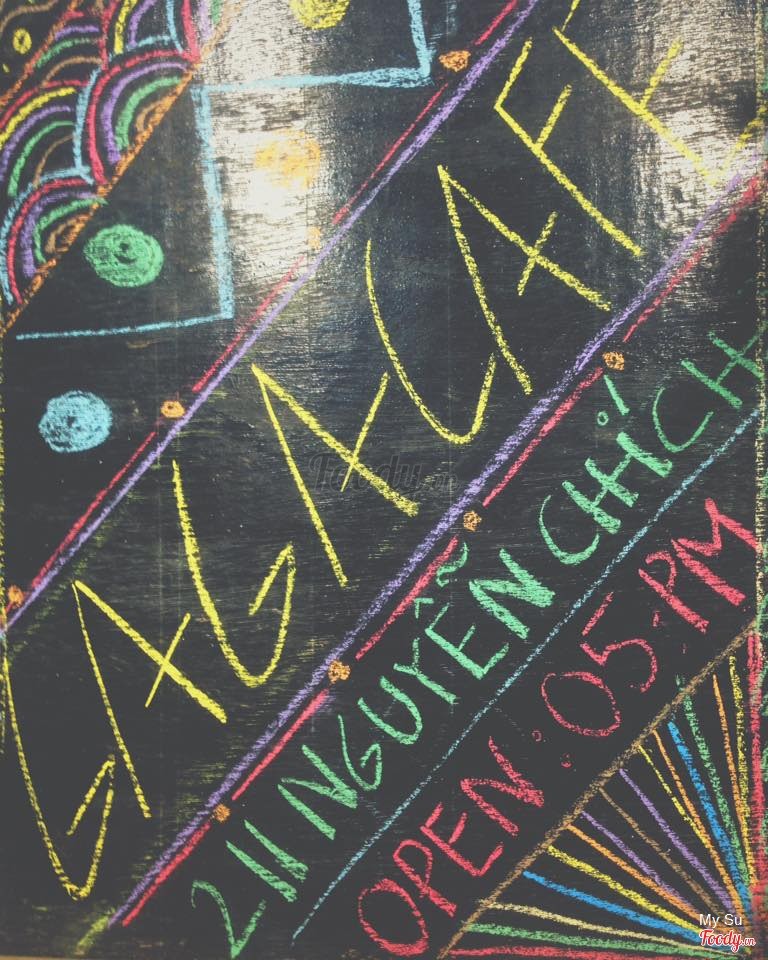 GAGA CAFE
211 NGUYỄN CHÍCH
OPEN : 05 PM
Foody.vn
My Su
Foody.vn